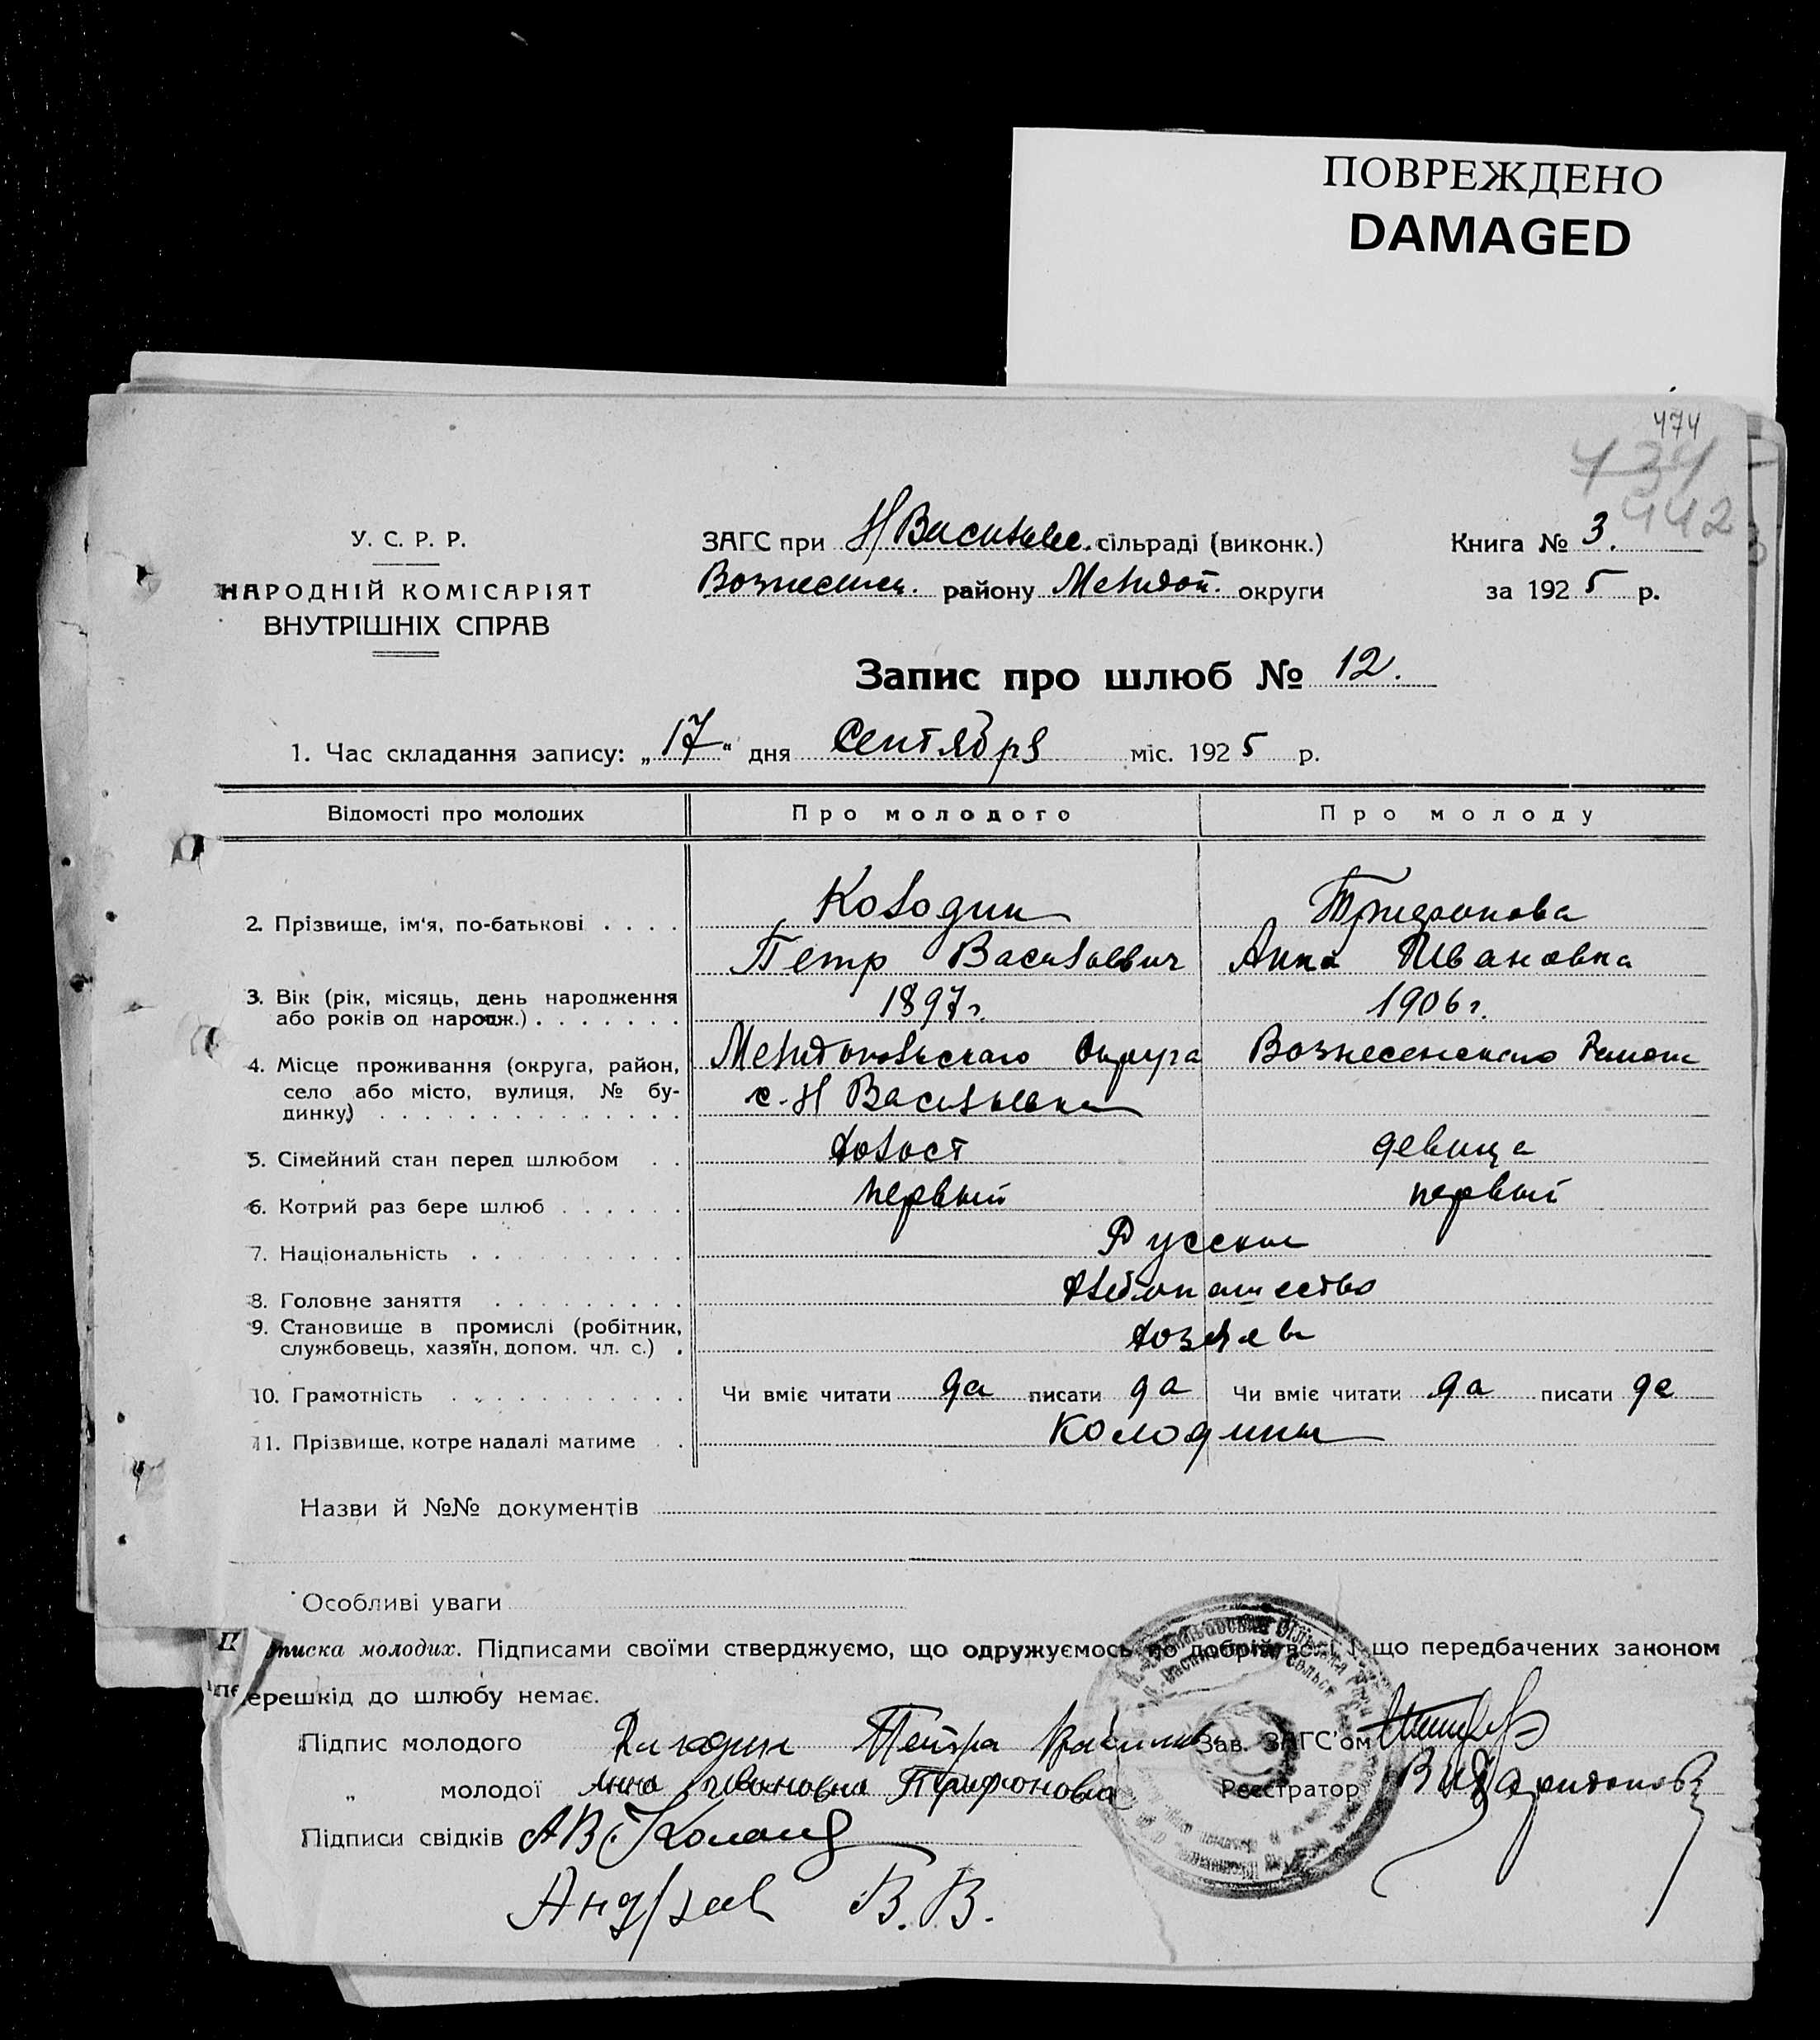 ПОВРЕЖДЕНО
DAMAGED
474
434
442
У. С. Р. Р.
НАРОДНІЙ КОМІСАРІЯТ
ВНУТРІШНІХ СПРАВ
ЗАГС при Н Васильев. сільраді (виконк.)
Вознесенск. району Мелитоп. округи
Книга № 3.
за 1925 р.
Запис про шлюб № 12.
1. Час складання запису: „17“ дня Сентября міс. 1925 р.
Відомості про молодих Про молодого Про молоду
2. Прізвище, ім'я, по-батькові Колодин Трифонова
Петр Васильевич Анна Ивановна
3. Вік (рік, місяць, день народження 1897 г. 1906 г.
або років од народж.)
4. Місце проживання (округа, район, Мелитопольского Округа Вознесенского Района
село або місто, вулиця, № бу- с. Н Васильевка
динку)
5. Сімейний стан перед шлюбом холост девица
6. Котрий раз бере шлюб первый первый
7. Національність Русские
8. Головне заняття хлебопашество
9. Становище в промислі (робітник, хозяева
службовець, хазяїн, допом. чл. с.)
10. Грамотність Чи вміє читати да писати да Чи вміє читати да писати да
11. Прізвище, котре надалі матиме Колодины
Назви й №№ документів
Особливі уваги
писка молодих. Підписами своїми стверджуємо, що одружуємось по добрій волі і що передбачених законом
перешкід до шлюбу немає.
Підпис молодого Петра Зав. ЗАГС'ом
„ молодої Анна Ивановна Трифоновна Реєстратор
Підписи свідків АВ
В. В.